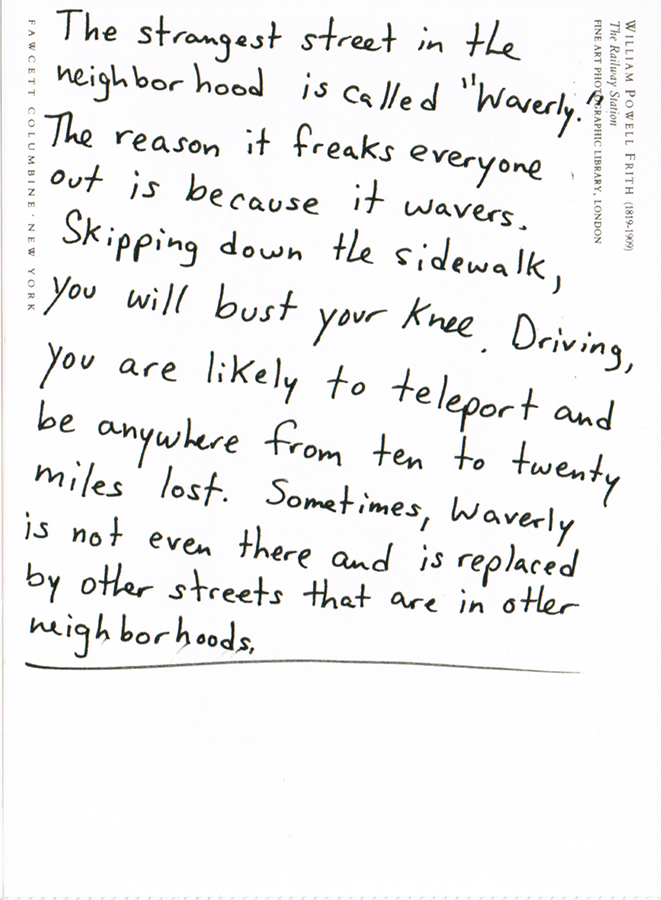 The strangest street in the
neighborhood is called "Waverly."
The reason it freaks everyone
out is because it wavers.
Skipping down the sidewalk,
you will bust your knee. Driving,
you are likely to teleport and
be anywhere from ten to twenty
miles lost. Sometimes, Waverly
is not even there and is replaced
by other streets that are in other
neighborhoods.
FAWCETT COLUMBINE · NEW YORK
WILLIAM POWELL FRITH (1819-1909)
The Railway Station
FINE ART PHOTOGRAPHIC LIBRARY, LONDON